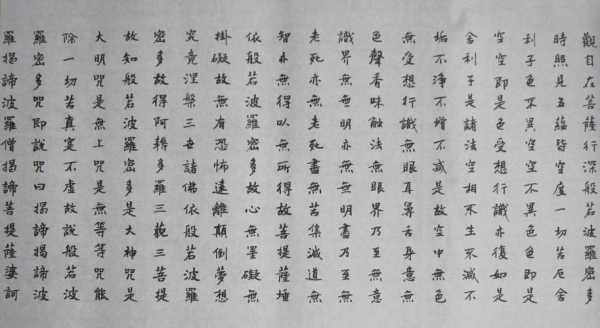 觀自在菩薩行深般若波羅密多
時照見五蘊皆空度一切苦厄舍
利子色不異空空不異色色即是
空空即是色受想行識亦復如是
舍利子是諸法空相不生不滅不
垢不淨不增不減是故空中無色
無受想行識無眼耳鼻舌身意無
色聲香味觸法無眼界乃至無意
識界無無明亦無無明盡乃至無
老死亦無老死盡無苦集滅道無
智亦無得以無所得故菩提薩埵
依般若波羅密多故心無罣礙無
掛礙故無有恐怖遠離顛倒夢想
究竟涅槃三世諸佛依般若波羅
密多故得阿耨多羅三藐三菩提
故知般若波羅密多是大神咒是
大明咒是無上咒是無等等咒能
除一切苦真實不虛故說般若波
羅密多咒即說咒曰揭諦揭諦波
羅揭諦波羅僧揭諦菩提薩婆訶